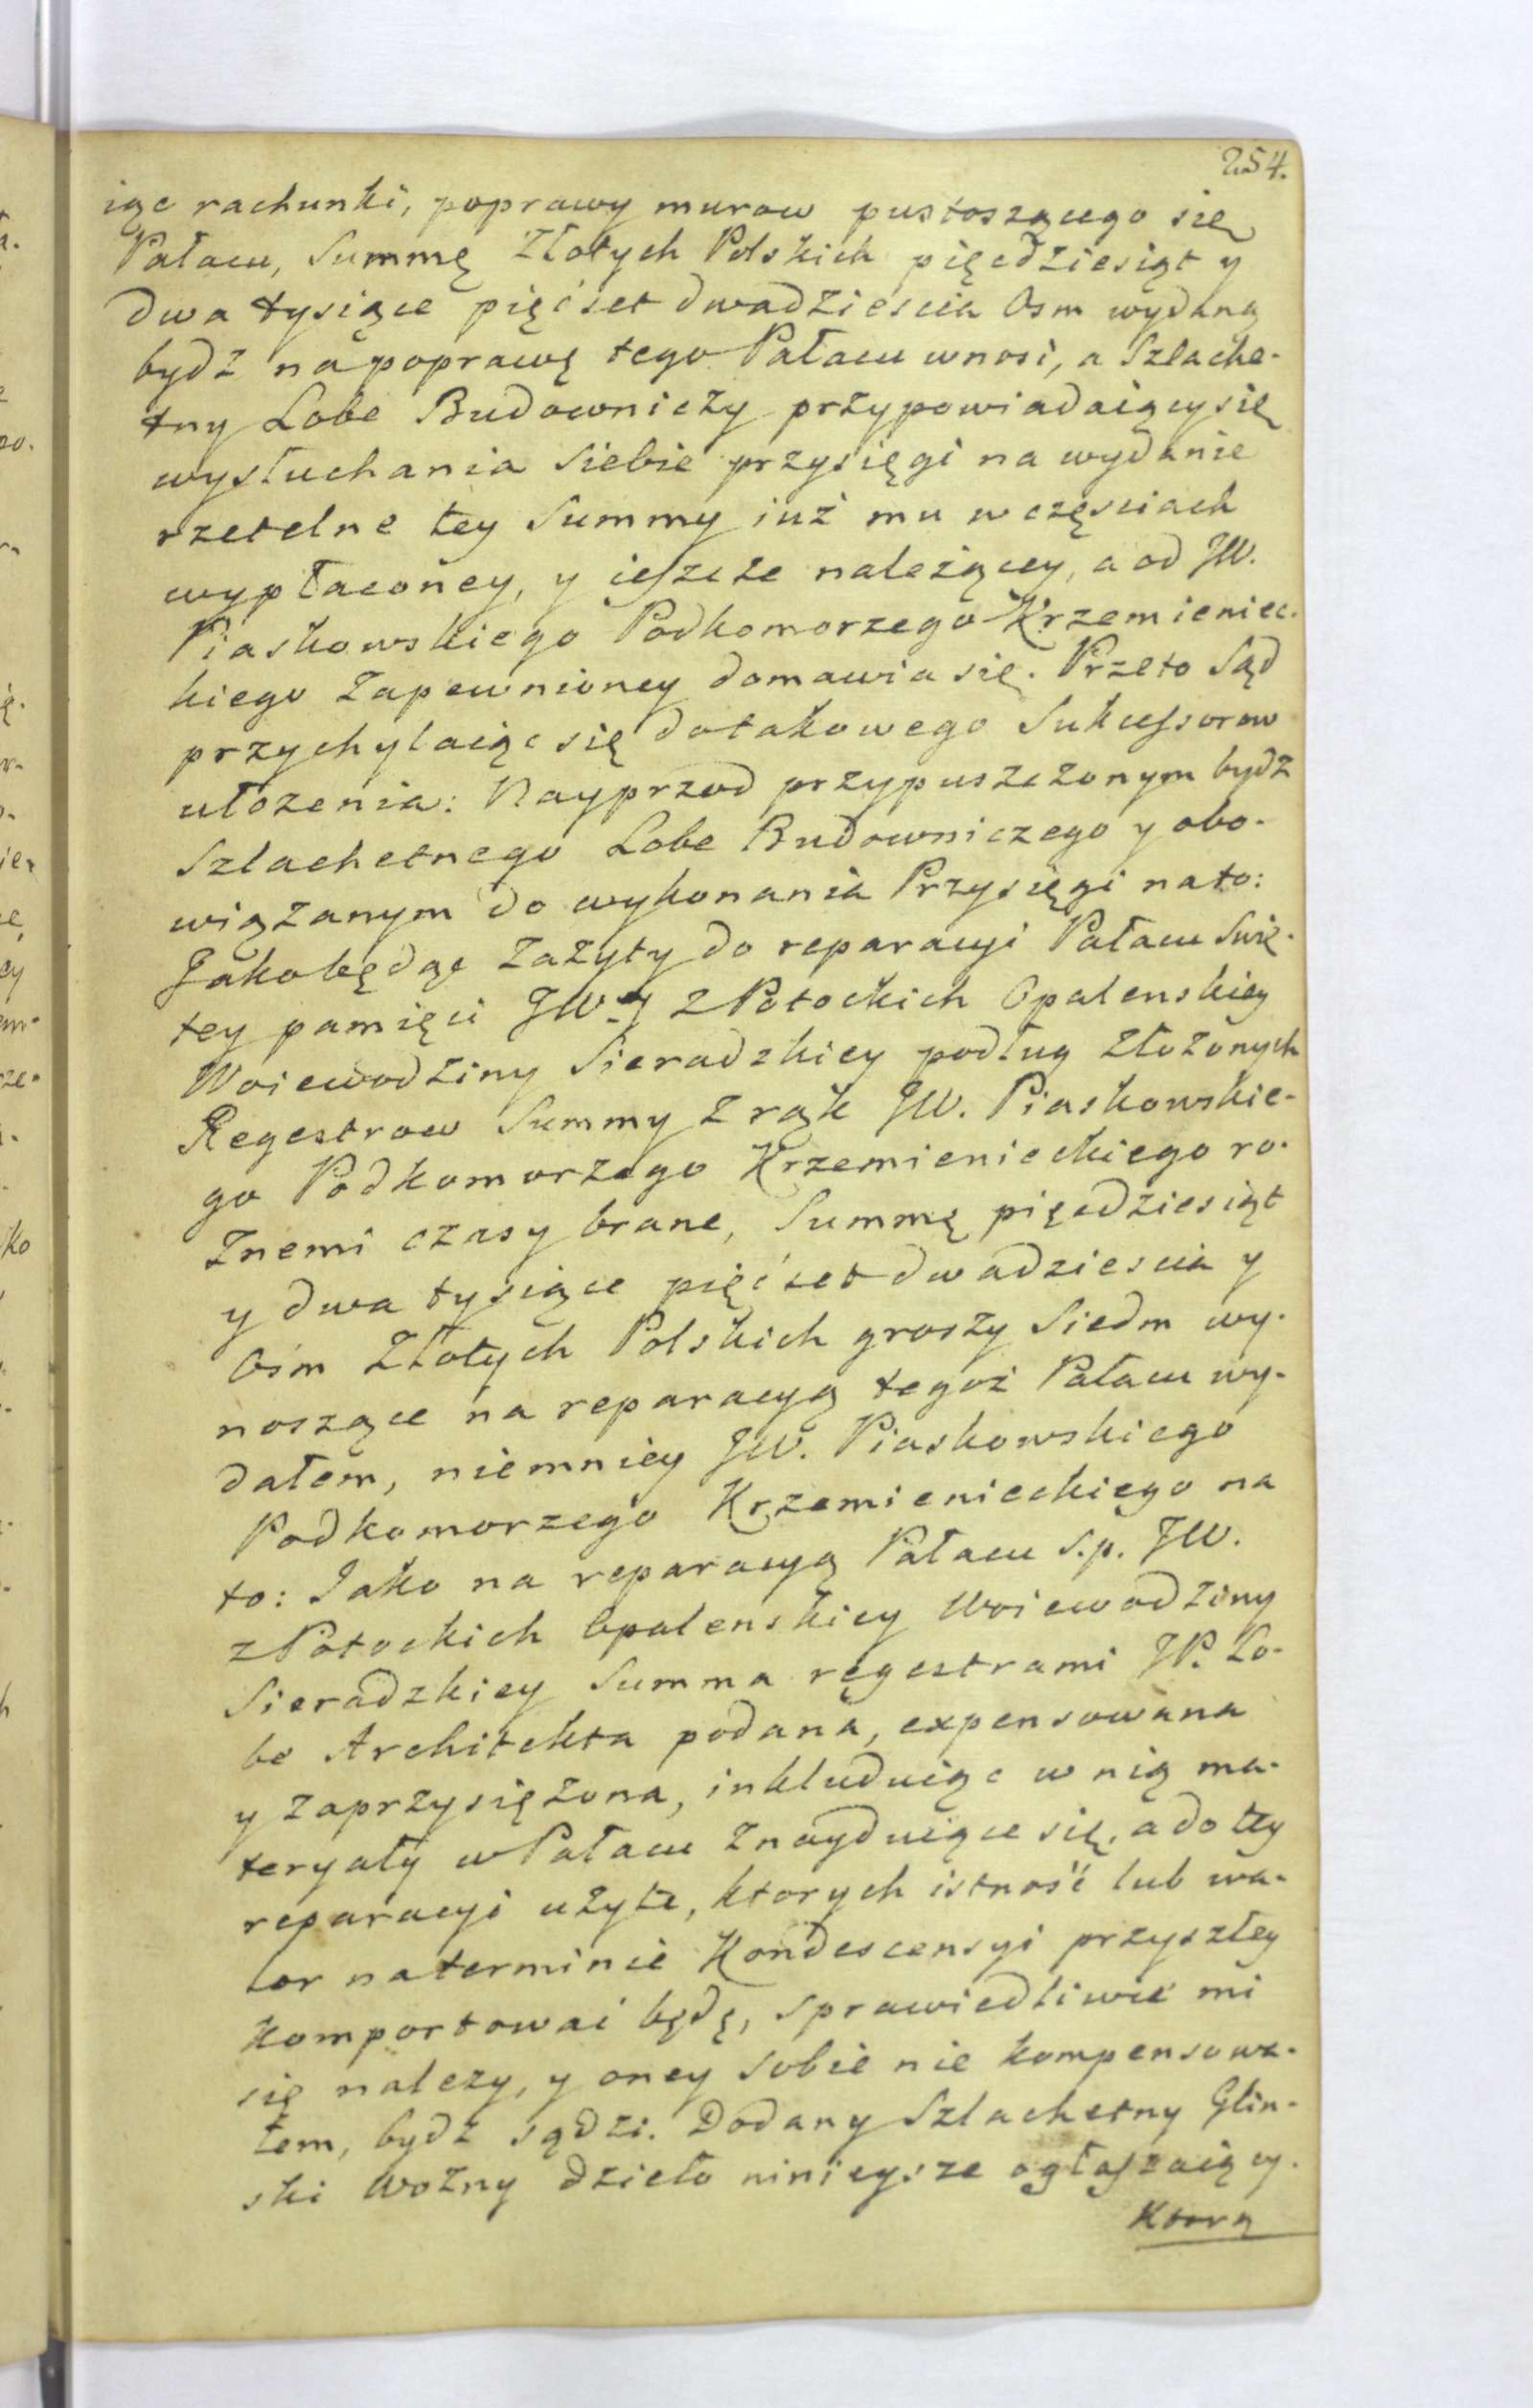 254.
iąc rachunki, poprawy murow pustoszącego się
Pałacu, Summę Złotych Polskich pięcdziesiąt y
dwa tysiące pięćset dwadziescia Osm wydaną
bydz na poprawę tego Pałacu wnosi, a Szlache-
tny Lobe Budowniczy przypowiadaiący się
wysłuchania siebie przysięgi na wydanie
rzetelne tey Summy iuż mu w częsciach
wypłaconey, y ieszcze należącey, a od JW.
Piaskowskiego Podkomorzego Krzemieniec-
kiego Zapewnioney domawia się. Przeto Sąd
przychylaiąc się do takowego Sukcessorow
ułożenia: Nayprzod przypuszczonym bydz
Szlachetnego Lobe Budowniczego y obo-
wiązanym do wykonania Przysięgi na to:
Jako będąc Zażyty do reparacyi Pałacu Swię-
tey pamięci JW-J z Potockich Opalenskiey
Woiewodziny Sieradzkiey podług złożonych
Regestrow Summy z rąk JW. Piaskowskie-
go Podkomorzego Krzemienieckiego ro-
Znemi czasy brane, Summę pięcdziesiąt
y dwa tysiące pięćset dwadziescia y
Ośm Złotych Polskich groszy Siedm wy-
noszące na reparacyą tegoż Pałacu wy-
dałem, niemniey JW. Piaskowskiego
Podkomorzego Krzemienieckiego na
to: Jako na reparacyą Pałacu S.p. JW.
z Potockich Opalenskiey Woiewodziny
Sieradzkiey Summa regestrami JP. Lo-
be Architekta podana, expensowana
y Zaprzysiężona, inkluduiąc w nią ma-
teryały w Pałacu Znayduiące się, a do tey
reparacyi użyte, ktorych istność lub wa-
lor na terminie Kondescensyi przyszłey
Komportować będę, sprawiedliwie mi
się nalezy, y oney sobie nie kompensowa-
łem, bydz sądzi. Dodany Szlachetny Glin-
ski Wozny dzieło ninieysze ogłaszaiący.
Ktorą